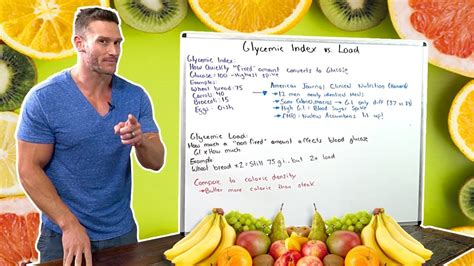 Glycemic Index vs. Load
Glycemic Index:
How Quickly "fixed" amount converts to Glucose
Glucose = 100 - Highest spike
Examples:
Wheat bread - 75
Carrots 40
Broccoli 15
Eggs: 0ish
American Journal Clinical Nutrition
→ 12 men nearly identical meals
→ Same calories, macros → G.I only diff (37 vs 84)
→ High G.I = Blood Sugar Spike
→ FMRI - Nucleus Accumbens lit up!
Glycemic Load:
How much a "non fixed" amount affects blood glucose
G.I x How much
Example
Wheat bread x2 = Still 75 g.i.. but 2x load
Compare to calorie density
→ Butter more calorie than steak